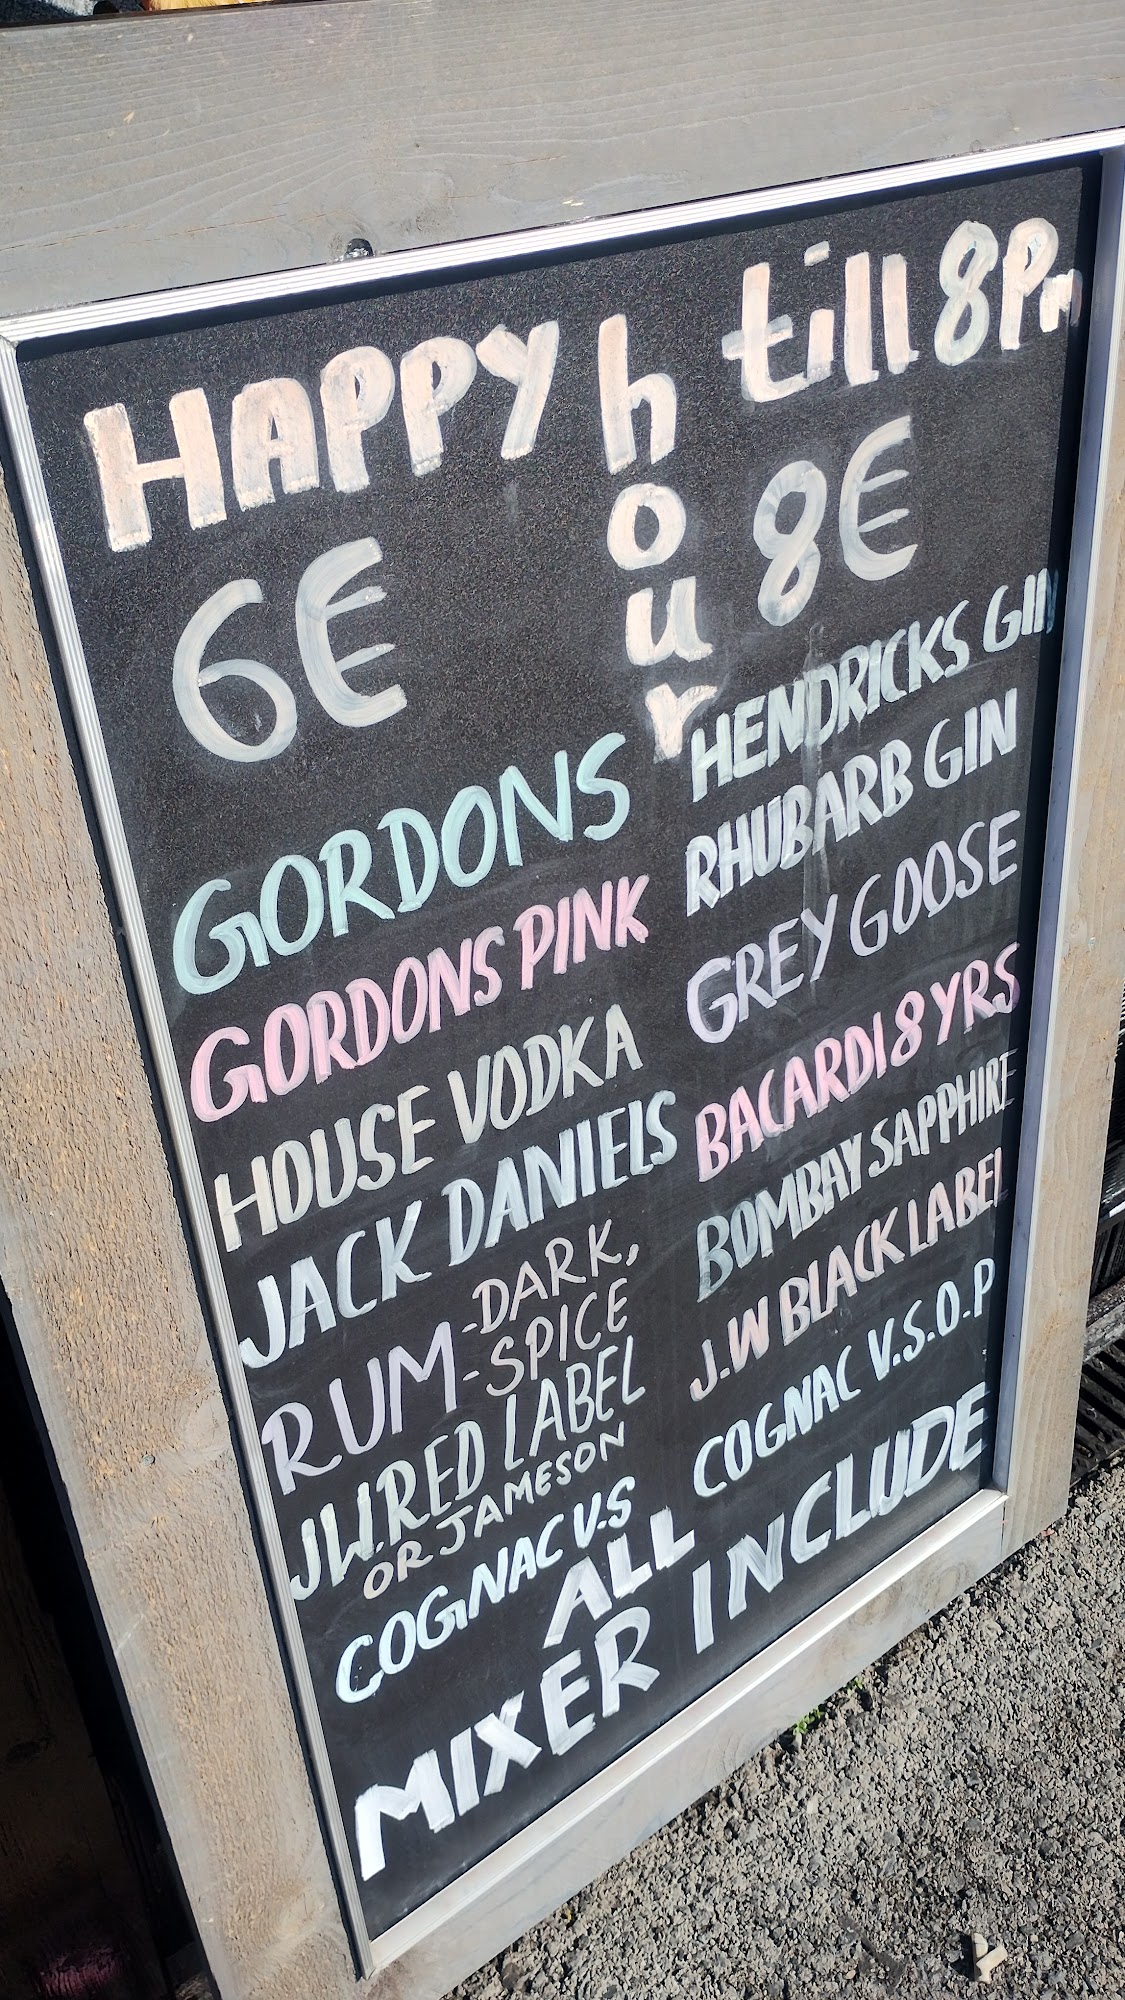 HAPPY hour till 8Pm
6€
GORDONS
GORDONS PINK
HOUSE VODKA
JACK DANIELS
RUM -DARK,
-SPICE
J.W.RED LABEL
OR JAMESON
COGNAC V.S
8€
HENDRICKS GIN
RHUBARB GIN
GREY GOOSE
BACARDI 8 YRS
BOMBAY SAPPHIRE
J.W BLACK LABEL
COGNAC V.S.O.P
ALL
MIXER INCLUDE